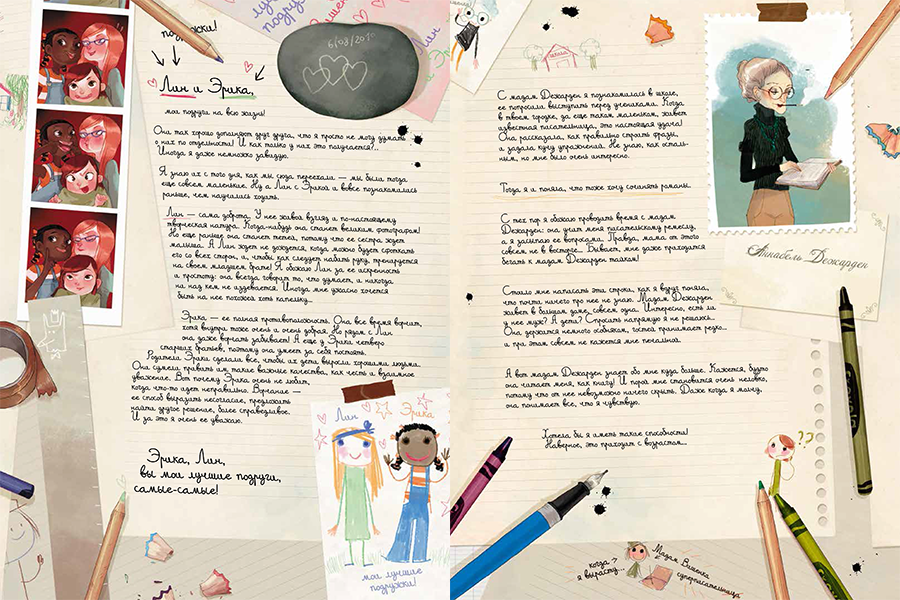 подружки!
Лин и Эрика,
мои подруги на всю жизнь!
Они так хорошо дополняют друг друга, что я просто не могу думать
о них по отдельности! И как только у них это получается?..
Иногда я даже немножко завидую.
Я знаю их с того дня, как мы сюда переехали — мы были тогда
еще совсем маленькие. Ну а Лин с Эрикой и вовсе познакомились
раньше, чем научились ходить.
Лин — сама доброта. У нее живой взгляд и по-настоящему
творческая натура. Когда-нибудь она станет великим фотографом!
Но еще раньше она станет тетей, потому что ее сестра ждет
малыша. А Лин ждет не дождется, когда можно будет сфоткать
его со всех сторон, и, чтобы как следует набить руку, тренируется
на своем младшем брате! Я обожаю Лин за ее искренность
и простоту: она всегда говорит то, что думает, и никогда
ни над кем не издевается. Иногда мне ужасно хочется
быть на нее похожей хоть капельку...
Эрика — ее полная противоположность. Она все время ворчит,
хотя внутри тоже очень и очень добрая. Но рядом с Лин
она даже ворчать забывает! А еще у Эрики четверо
старших братьев, поэтому она умеет за себя постоять.
Родители Эрики сделали все, чтобы их дети выросли хорошими людьми.
Они сумели привить им такие важные качества, как честь и взаимное
уважение. Вот почему Эрика очень не любит,
когда что-то идет неправильно. Ворчание —
ее способ выразить несогласие, предложить
найти другое решение, более справедливое.
И за это я очень ее уважаю.
Эрика, Лин,
вы мои лучшие подруги,
самые-самые!
6/08/2010
Лин
Эрика
мои лучшие
подружки!
школа
С мадам Дежарден я познакомилась в школе,
ее попросили выступить перед учениками. Когда
в твоем городке, да еще таком маленьком, живет
известная писательница, это настоящая удача!
Она рассказала, как правильно строить фразы,
и задала кучу упражнений. Не знаю, как осталь-
ным, но мне было очень интересно.
Тогда я и поняла, что тоже хочу сочинять романы.
С тех пор я обожаю проводить время с мадам
Дежарден: она учит меня писательскому ремеслу,
а я засыпаю ее вопросами. Правда, мама от этого
совсем не в восторге... Бывает, мне даже приходится
бегать к мадам Дежарден тайком!
Стоило мне написать эти строки, как я вдруг поняла,
что почти ничего про нее не знаю. Мадам Дежарден
живет в большом доме, совсем одна. Интересно, есть ли
у нее муж? А дети? Спросить напрямую я не решаюсь...
Она держится немного особняком, гостей принимает редко...
и при этом совсем не кажется мне печальной.
А вот мадам Дежарден знает обо мне куда больше. Кажется, будто
она читает меня, как книгу! И порой мне становится очень неловко,
потому что от нее невозможно ничего скрыть. Даже когда я молчу,
она понимает все, что я чувствую.
Хотела бы я иметь такие способности!
Наверное, это приходит с возрастом...
Аннабель Дежарден
??
когда
я вырасту...
Мадам Вишенка
суперписательница